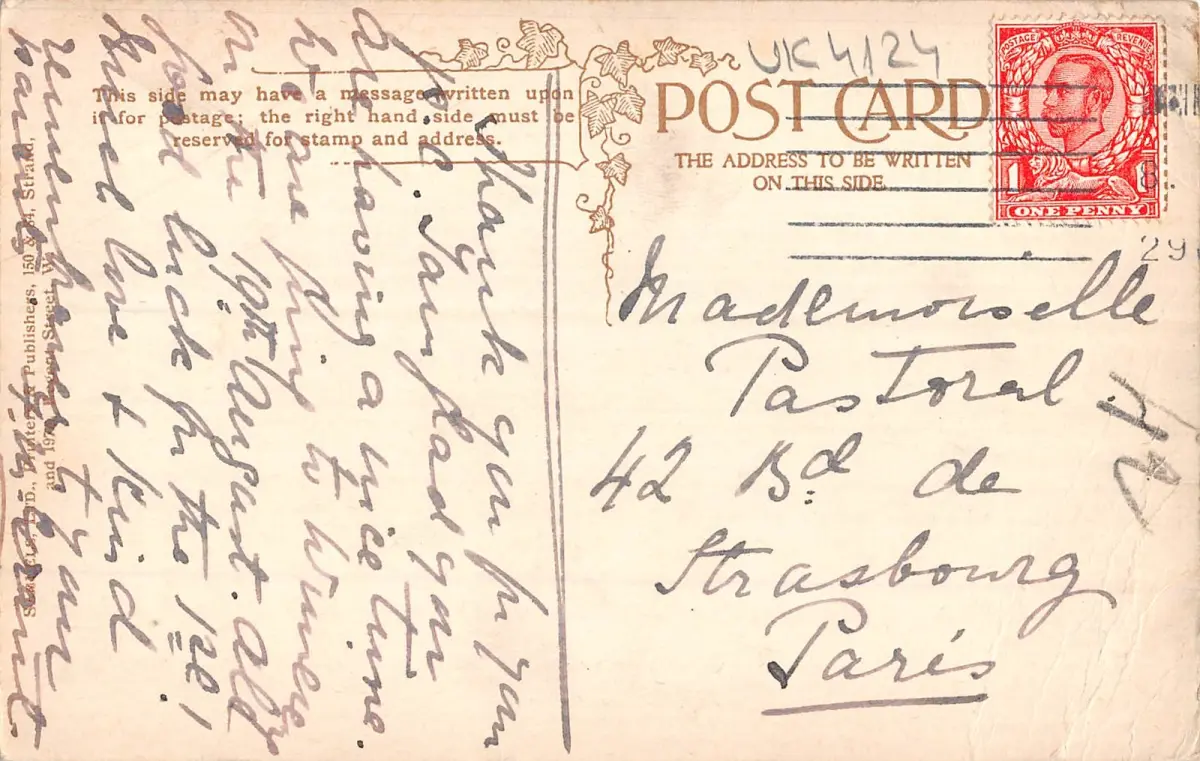 UK 4124
POST CARD
THE ADDRESS TO BE WRITTEN
ON THIS SIDE.
This side may have a message written upon
it for postage; the right hand side must be
reserved for stamp and address.
POSTAGE REVENUE
1
ONE PENNY
8
29
Thank you for your
p.c. I am glad you
are having a nice time.
We are going to
on the 19th August. All
good luck for the
Much love & kind
remembrances to your
parents.
Mademoiselle
Pastoral
42 Bd de
Strasbourg
Paris
LTD., Printers & Publishers, 150 & 184, Strand,
and Regent Street, W.